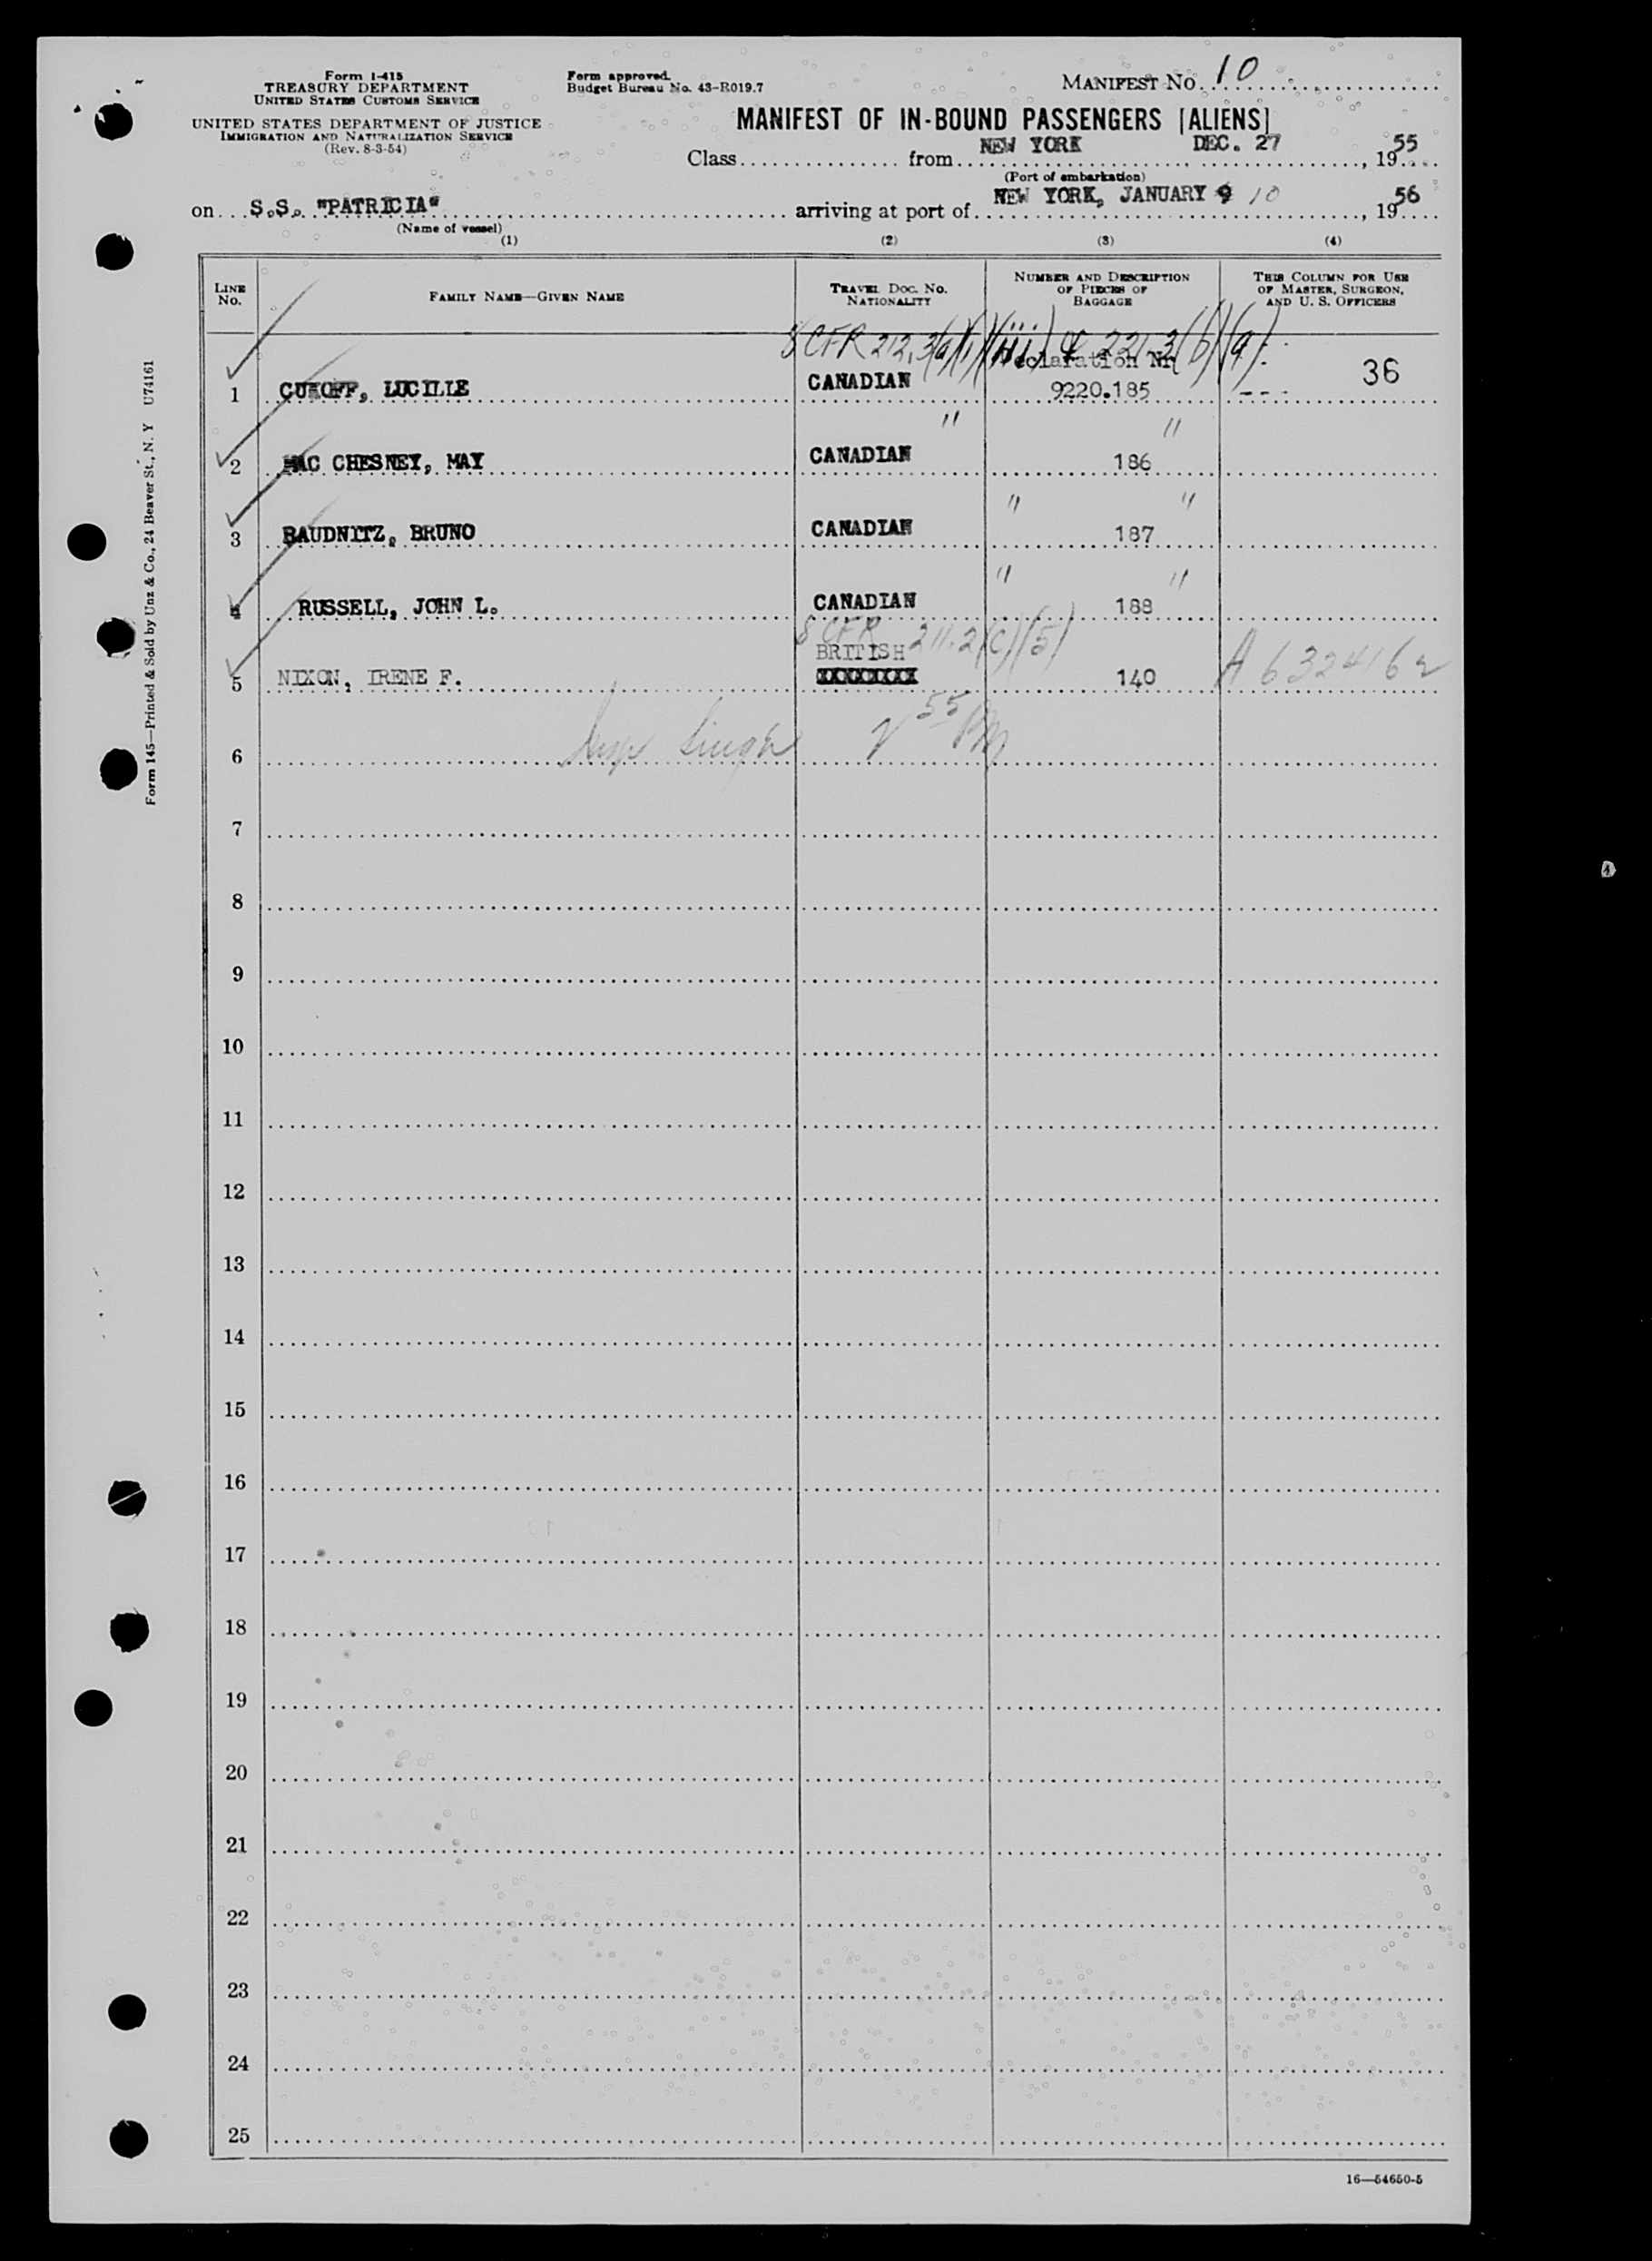 Form I-415
TREASURY DEPARTMENT
UNITED STATES CUSTOMS SERVICE
UNITED STATES DEPARTMENT OF JUSTICE
IMMIGRATION AND NATURALIZATION SERVICE
(Rev. 8-3-54)
Form approved.
Budget Bureau No. 43-R019.7
MANIFEST NO. 10
MANIFEST OF IN-BOUND PASSENGERS [ALIENS]
Class from NEW YORK DEC. 27, 1955
(Port of embarkation)
on S.S. "PATRICIA" arriving at port of NEW YORK, JANUARY 9 10, 1956
(Name of vessel)
(1) (2) (3) (4)
LINE NO. FAMILY NAME—GIVEN NAME TRAVEL DOC. NO. NATIONALITY NUMBER AND DESCRIPTION OF PIECES OF BAGGAGE THIS COLUMN FOR USE OF MASTER, SURGEON, AND U. S. OFFICERS
8 CFR 212.3(a)(1)(iii) & 221.3(b)(a)
Declaration Nr.
1 CUKOFF, LUCILLE CANADIAN 9220.185 --- 36
" "
2 MAC CHESNEY, MAY CANADIAN 186
" "
3 BAUDNITZ, BRUNO CANADIAN 187
" "
4 RUSSELL, JOHN L. CANADIAN 188
8 CFR 211.2(c)(5)
BRITISH
5 NIXON, IRENE F. XXXXXXXX 140 A 6324162
2 55 PM
6
7
8
9
10
11
12
13
14
15
16
17
18
19
20
21
22
23
24
25
16—54650-5
Form 145—Printed & Sold by Unz & Co., 24 Beaver St., N. Y U74161